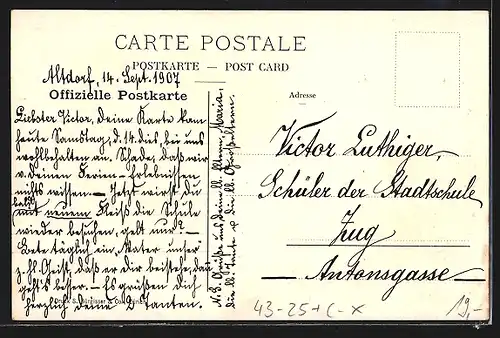 CARTE POSTALE
POSTKARTE — POST CARD
Altdorf, 14. Sept. 1907
Offizielle Postkarte
Adresse
Liebster Victor, Deine Karte kam
heute Samstag, d. 14. dies, bei uns
wohlbehalten an. Schade, daß wir
v. deinen Ferien-Erlebnissen
nichts wissen — Jetzt wirst du
mit neuem Fleiß die Schule
wieder besuchen, gelt nur? —
Bete täglich ein „Vater unser
z. hl. Geist, daß er dir beistehe, dann
geht's besser. — Es grüßen dich
herzlich deine 2 Tanten.
N.B. Grüße uns deine lb. Eltern, Maria,
die lb. Tante & die lb. Großeltern.
Victor Luthiger,
Schüler der Stadtschule
Zug
— Antonsgasse —
43-25+C-X
19,-